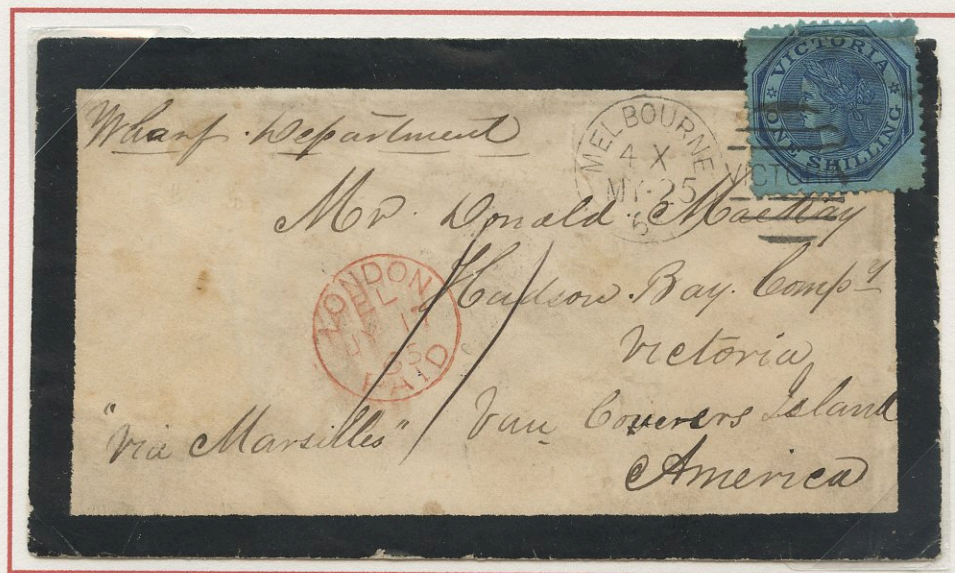 VICTORIA
ONE SHILLING
Wharf. Department
MELBOURNE
4 X
MY-25
6
VICTORIA
Mr. Donald. MacKay
LONDON
JY 17
65
PAID
Hudson. Bay. Compy
Victoria
"via Marsilles"
Van Couvers Island
America